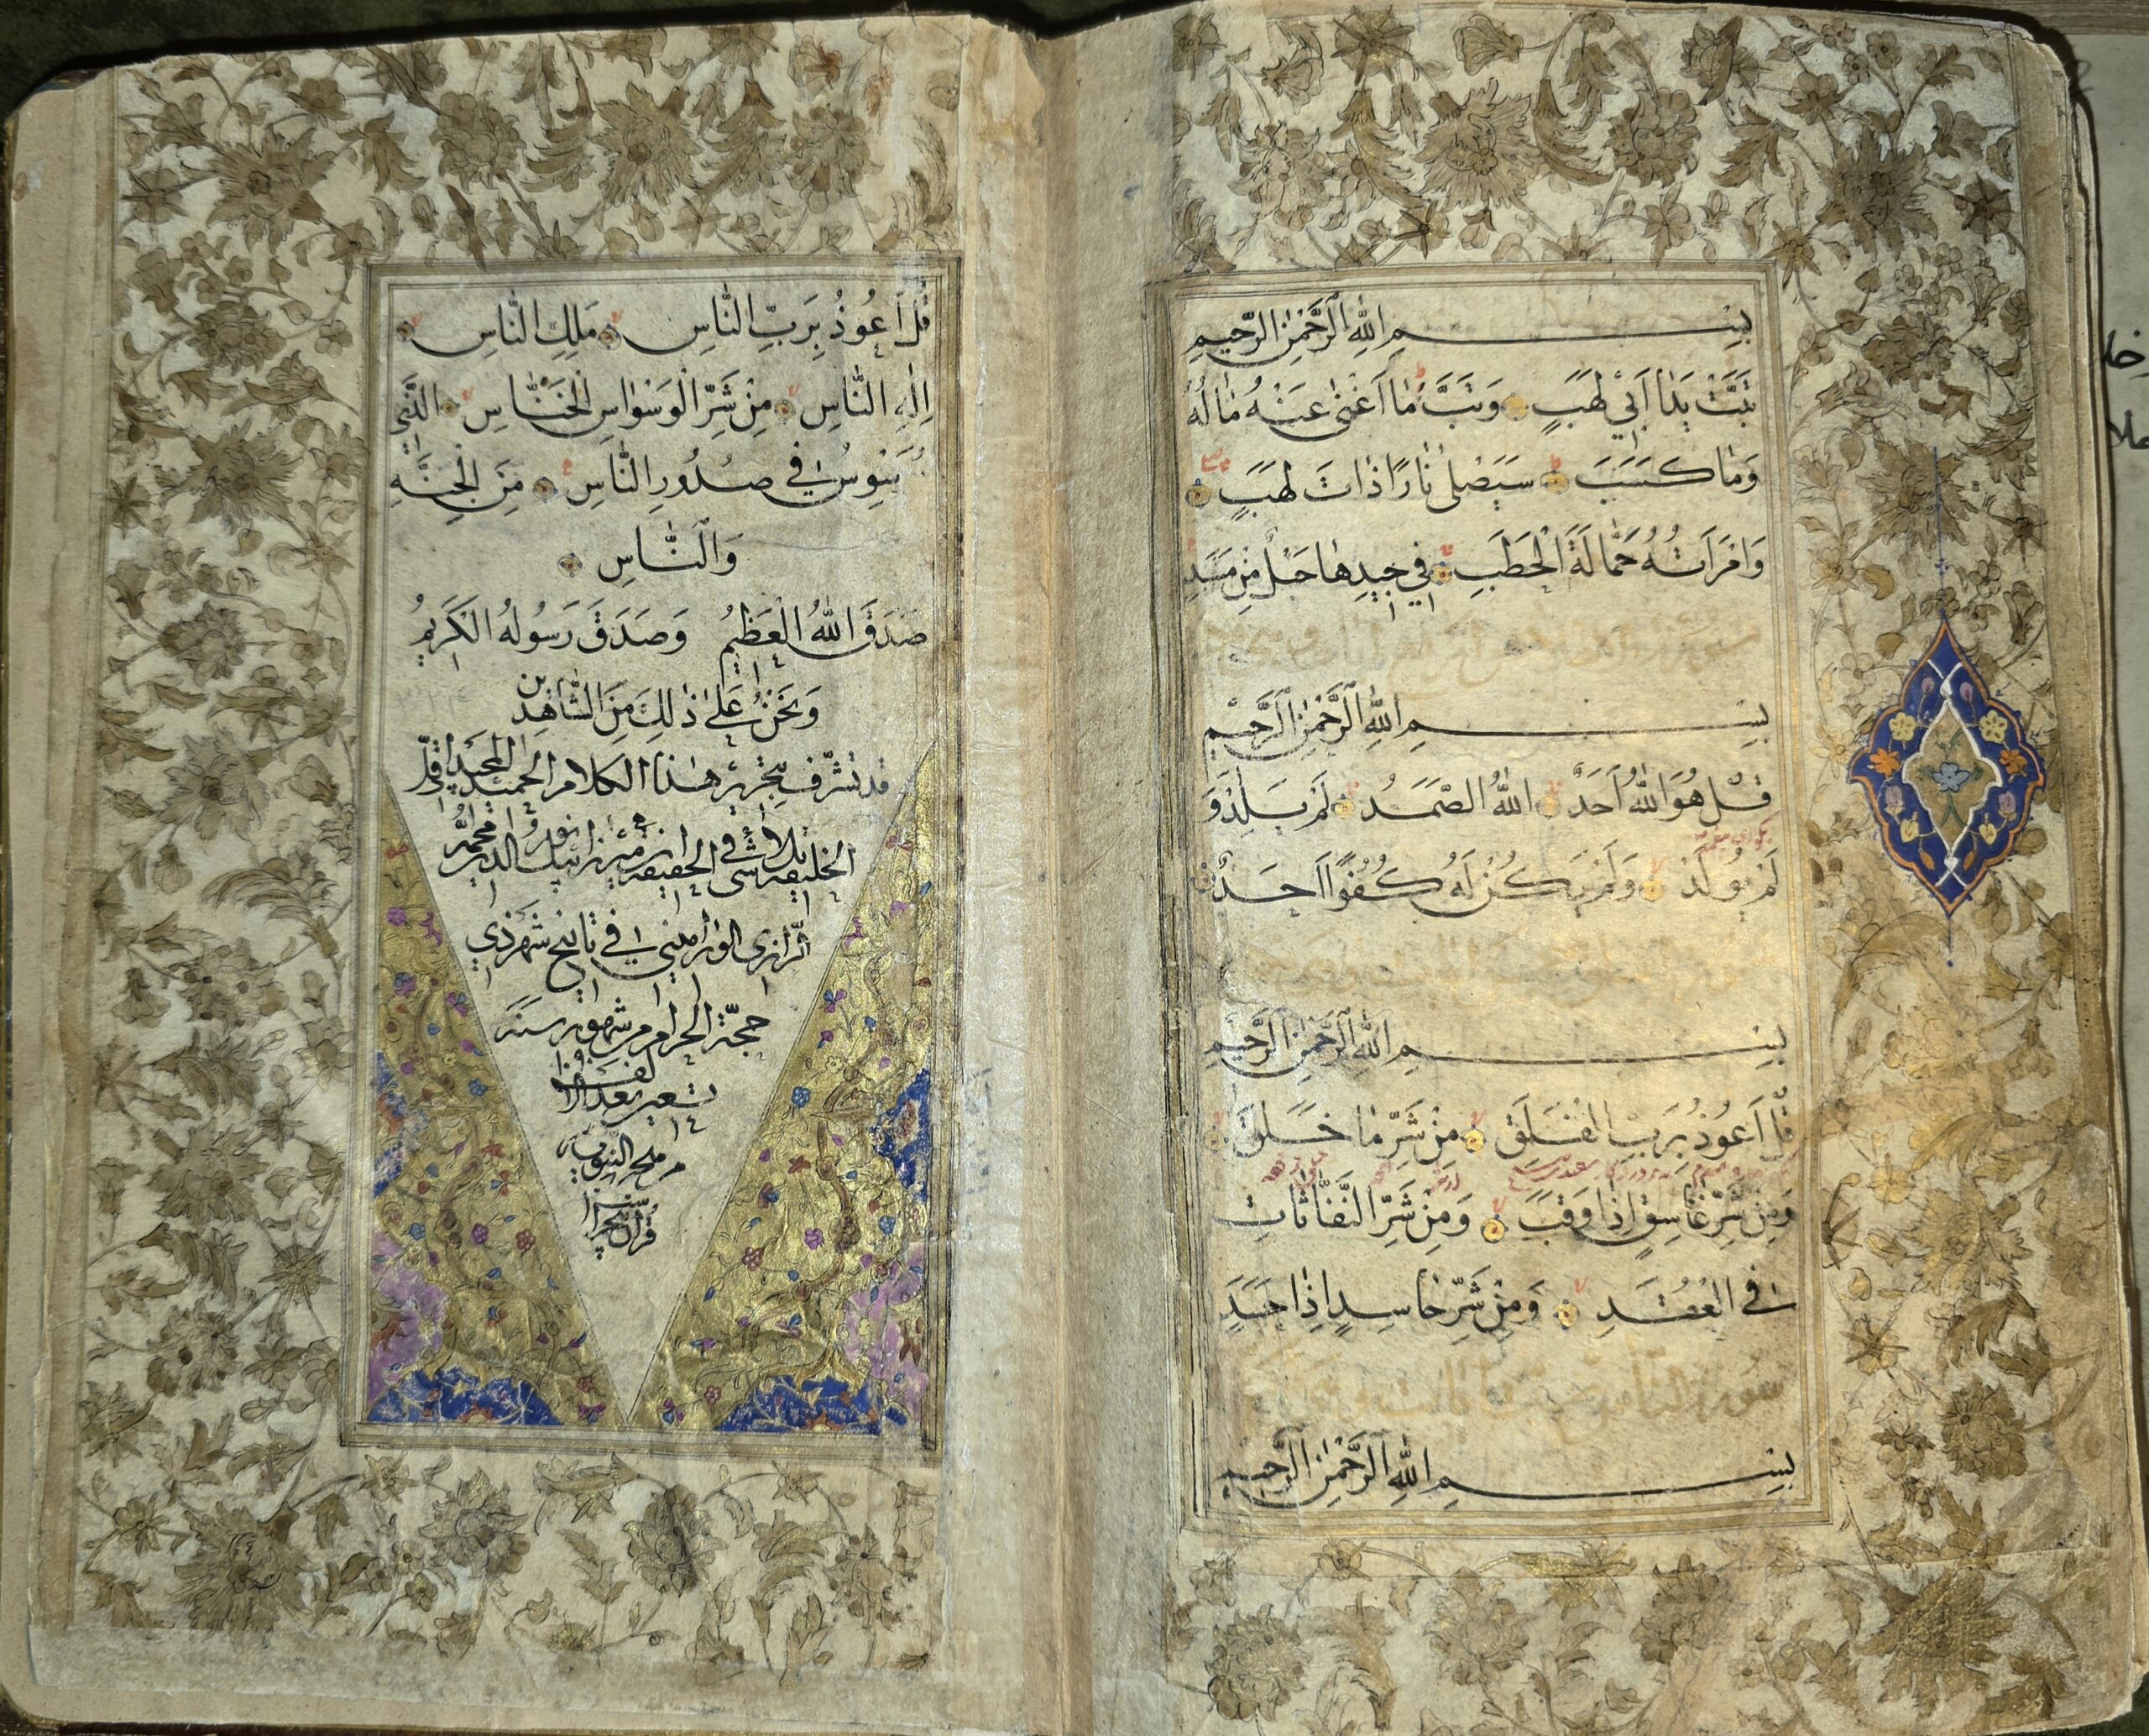 بِسْمِ اللهِ الرَّحْمٰنِ الرَّحِيمِ
تَبَّتْ يَدٰا اَبِي لَهَبٍ وَتَبَّ مٰا اَغْنىٰ عَنْهُ مٰالُهُ
وَمٰا كَسَبَ سَيَصْلىٰ نٰارًا ذٰاتَ لَهَبٍ
وَامْرَاَتُهُ حَمّٰالَةَ الْحَطَبِ فِي جِيدِهٰا حَبْلٌ مِنْ مَسَدٍ
بِسْمِ اللهِ الرَّحْمٰنِ الرَّحِيمِ
قُلْ هُوَ اللهُ اَحَدٌ اللهُ الصَّمَدُ لَمْ يَلِدْ وَ
لَمْ يُولَدْ وَلَمْ يَكُنْ لَهُ كُفُوًا اَحَدٌ
بِسْمِ اللهِ الرَّحْمٰنِ الرَّحِيمِ
قُلْ اَعُوذُ بِرَبِّ الْفَلَقِ مِنْ شَرِّ مٰا خَلَقَ
وَمِنْ شَرِّ غٰاسِقٍ اِذٰا وَقَبَ وَمِنْ شَرِّ النَّفّٰاثٰاتِ
فِي الْعُقَدِ وَمِنْ شَرِّ حٰاسِدٍ اِذٰا حَسَدَ
سورة الناس
بِسْمِ اللهِ الرَّحْمٰنِ الرَّحِيمِ
قُلْ اَعُوذُ بِرَبِّ النّٰاسِ مَلِكِ النّٰاسِ
اِلٰهِ النّٰاسِ مِنْ شَرِّ الْوَسْوٰاسِ الْخَنّٰاسِ الَّذِي
يُوَسْوِسُ فِي صُدُورِ النّٰاسِ مِنَ الْجِنَّةِ
وَالنّٰاسِ
صَدَقَ اللهُ الْعَظِيمُ وَصَدَقَ رَسُولُهُ الْكَرِيمُ
وَنَحْنُ عَلىٰ ذٰلِكَ مِنَ الشّٰاهِدِين
قد تشرف بتحرير هذا الكلام الحميد المجيد اقل
الخليقة بل لاشئ في الحقيقة ابن ميرزا نور الدين محمد
الرازي الورامني في تاريخ شهر ذي
حجة الحرام من شهور سنة